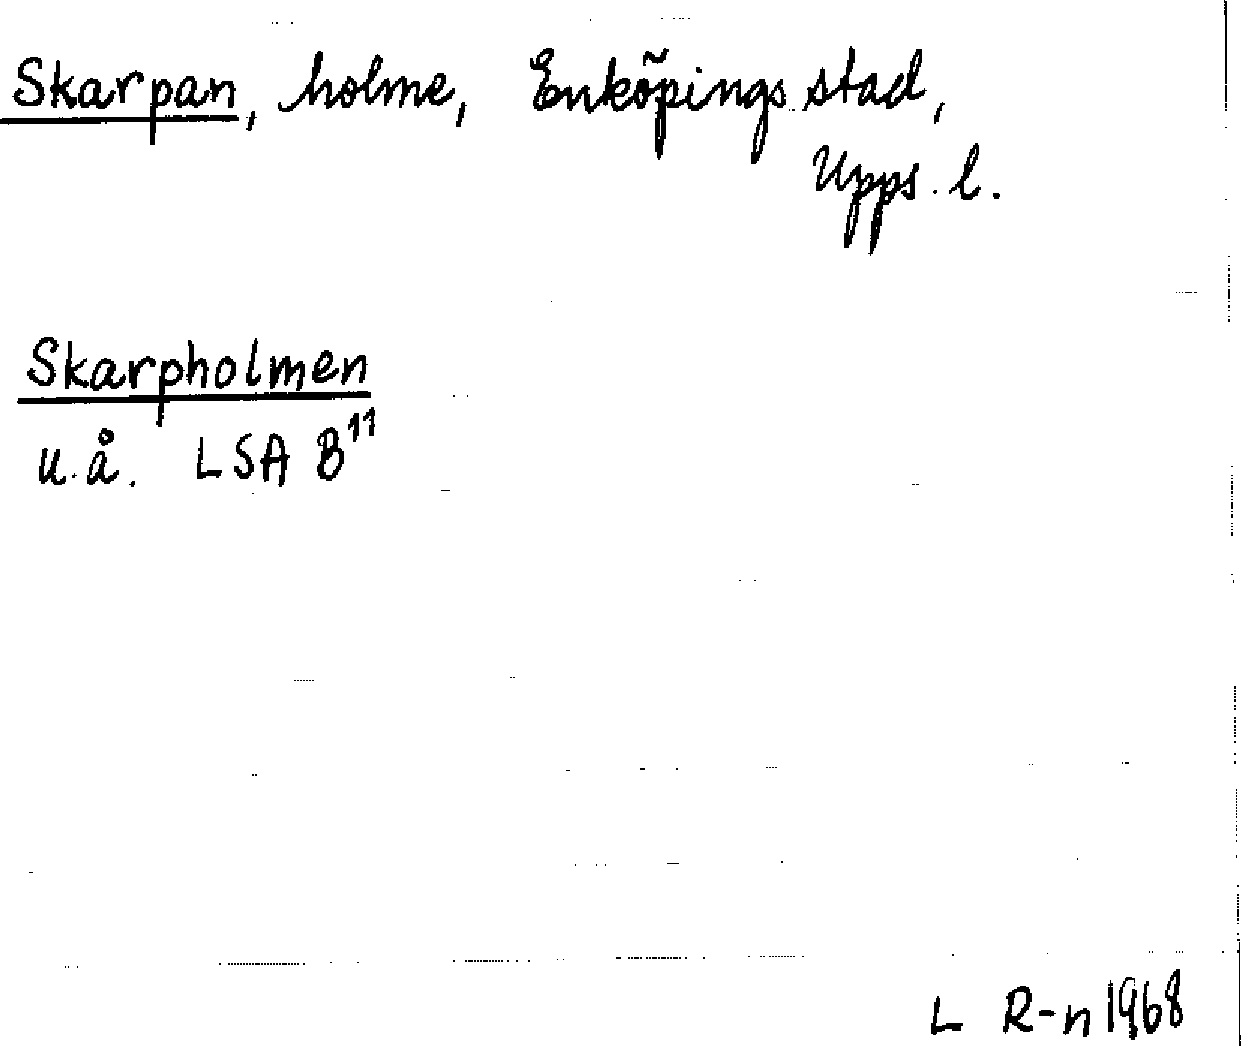 Skarpan, holme, Enköpings stad,
Upps. l.
Skarpholmen
u.å. LSA B¹¹
L R-n 1968